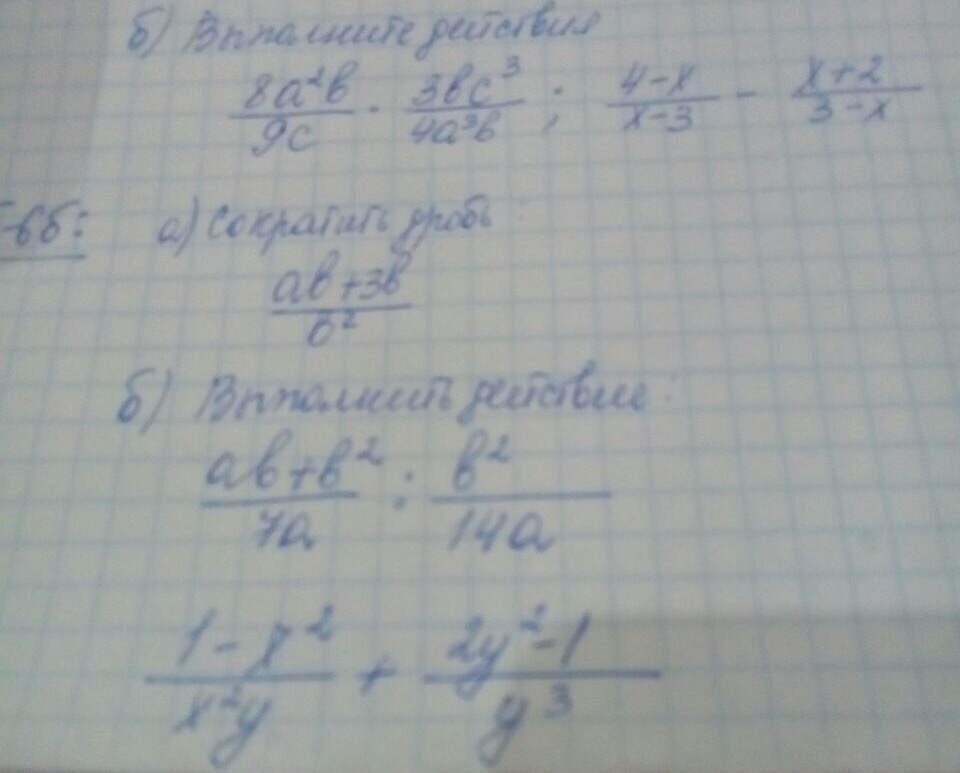 б) Выполните действия
8a²b/9c · 3bc³/4a³b ; 4-x/x-3 - x+2/3-x
-6б: а) Сократить дробь:
ab+3b/b²
б) Выполнить действия:
ab+b²/7a : b²/14a
1-x²/x²y + 2y²-1/y³